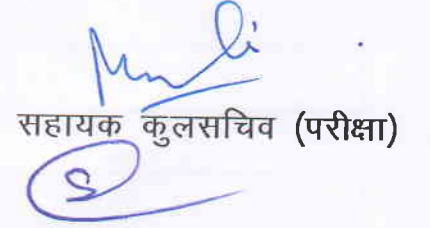 सहायक कुलसचिव (परीक्षा)